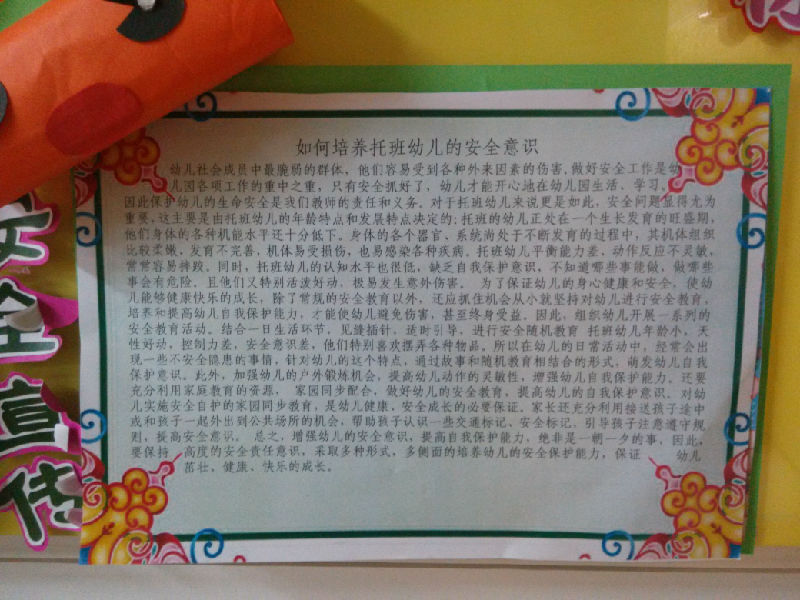 如何培养托班幼儿的安全意识
幼儿社会成员中最脆弱的群体，他们容易受到各种外来因素的伤害，做好安全工作是幼
儿园各项工作的重中之重，只有安全抓好了，幼儿才能开心地在幼儿园生活、学习，
因此保护幼儿的生命安全是我们教师的责任和义务。对于托班幼儿来说更是如此，安全问题显得尤为
重要，这主要是由托班幼儿的年龄特点和发展特点决定的；托班的幼儿正处在一个生长发育的旺盛期，
他们身体的各种机能水平还十分低下。身体的各个器官、系统尚处于不断发育的过程中，其机体组织
比较柔嫩、发育不完善，机体易受损伤，也易感染各种疾病。托班幼儿平衡能力差、动作反应不灵敏，
常常容易摔跤。同时，托班幼儿的认知水平也很低，缺乏自我保护意识，不知道哪些事能做，做哪些
事会有危险，且他们又特别活泼好动，极易发生意外伤害。 为了保证幼儿的身心健康和安全，使幼
儿能够健康快乐的成长，除了常规的安全教育以外，还应抓住机会从小就坚持对幼儿进行安全教育，
培养和提高幼儿自我保护能力，才能使幼儿避免伤害，甚至终身受益。因此，组织幼儿开展一系列的
安全教育活动。结合一日生活环节，见缝插针，适时引导，进行安全随机教育 托班幼儿年龄小，天
性好动，控制力差，安全意识差，他们特别喜欢摆弄各种物品。所以在幼儿的日常活动中，经常会出
现一些不安全隐患的事情，针对幼儿的这个特点，通过故事和随机教育相结合的形式，萌发幼儿自我
保护意识。此外，加强幼儿的户外锻炼机会，提高幼儿动作的灵敏性，增强幼儿自我保护能力。还要
充分利用家庭教育的资源， 家园同步配合，做好幼儿的安全教育，提高幼儿的自我保护意识。对幼
儿实施安全自护的家园同步教育，是幼儿健康，安全成长的必要保证。家长还充分利用接送孩子途中
或和孩子一起外出到公共场所的机会，帮助孩子认识一些交通标记，安全标记，引导孩子注意遵守规
则，提高安全意识。 总之，增强幼儿的安全意识，提高自我保护能力，绝非是一朝一夕的事，因此，
要保持 高度的安全责任意识，采取多种形式，多侧面的培养幼儿的安全保护能力，保证 幼儿
茁壮、健康、快乐的成长。
安
全
宣
传